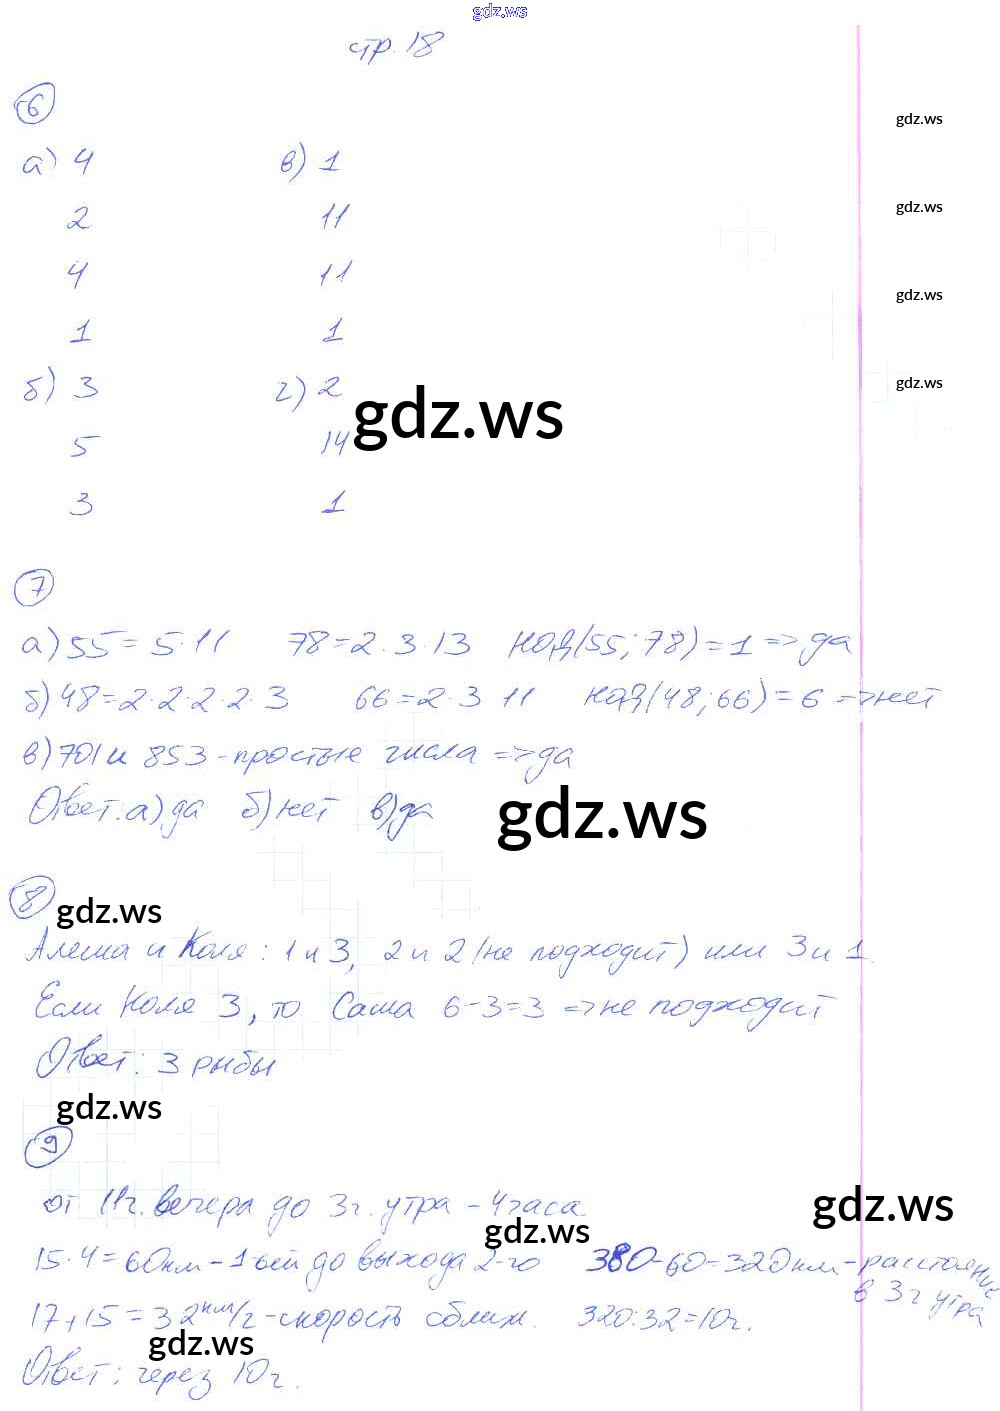 gdz.ws
стр. 18
6
gdz.ws
а) 4 в) 1
2 11
gdz.ws
4 11
gdz.ws
1 1
б) 3 г) 2
gdz.ws
gdz.ws
5 14
3 1
7
а) 55 = 5·11 78 = 2·3·13 НОД(55; 78) = 1 => да
б) 48 = 2·2·2·2·3 66 = 2·3 11 НОД(48; 66) = 6 => нет
в) 701 и 853 - простые числа => да
Ответ. а) да б) нет в) да
gdz.ws
8
gdz.ws
Алеша и Коля: 1 и 3, 2 и 2 (не подходит) или 3 и 1.
Если Коля 3, то Саша 6-3=3 => не подходит
Ответ: 3 рыбы
gdz.ws
9
от 11ч. вечера до 3ч. утра - 4 часа
gdz.ws
gdz.ws
15·4=60км - 1-ый до выхода 2-го 380-60=320км - расстояние
в 3ч утра
17+15=32км/ч - скорость сближ. 320:32=10ч.
gdz.ws
Ответ: через 10ч.